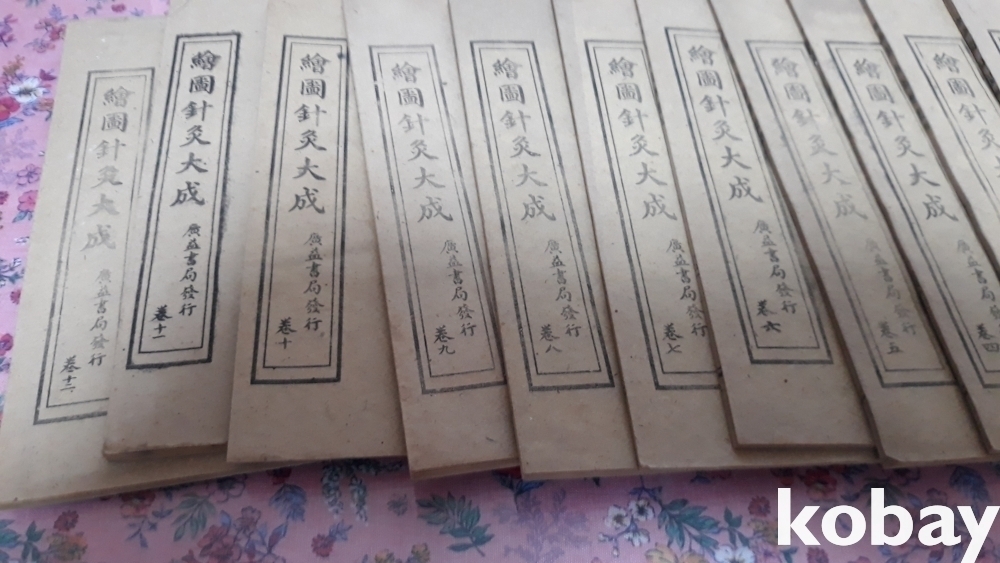 繪圖針灸大成
廣益書局發行
卷十二
繪圖針灸大成
廣益書局發行
卷十一
繪圖針灸大成
廣益書局發行
卷十
繪圖針灸大成
廣益書局發行
卷九
繪圖針灸大成
廣益書局發行
卷八
繪圖針灸大成
廣益書局發行
卷七
繪圖針灸大成
廣益書局發行
卷六
繪圖針灸大成
廣益書局發行
卷五
繪圖針灸大成
廣益書局發行
卷四
繪圖針灸
kobay